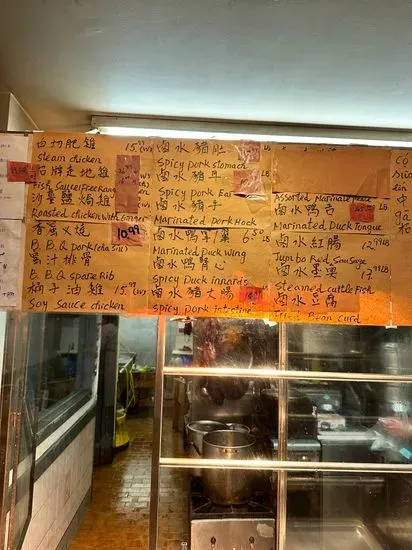 白切肥雞 15.99(w)
steam chicken
招牌走地雞
Fish Sauce Free Range
沙薑鹽焗雞
Roasted chicken with Ginger
香蜜叉燒 10.99
B.B.Q pork (cha siu)
蜜汁排骨
B.B.Q spare Rib
柚子油雞 15.99(w)
Soy Sauce chicken
鹵水豬肚 LB
Spicy pork stomach
鹵水豬耳
Spicy pork Ear
鹵水豬手
Marinated pork Hock
鹵水鴨翼 6.50 LB
Marinated Duck Wing
鹵水鴨背心
Spicy Duck innards
鹵水豬大腸
Spicy pork intestine
Assorted Marinate
鹵水鴨舌
Marinated Duck Tongue
鹵水紅腸 12.99 LB
Jumbo Red Sausage
鹵水墨魚 17.99 LB
Steamed cuttle Fish
鹵水豆腐
Bean curd